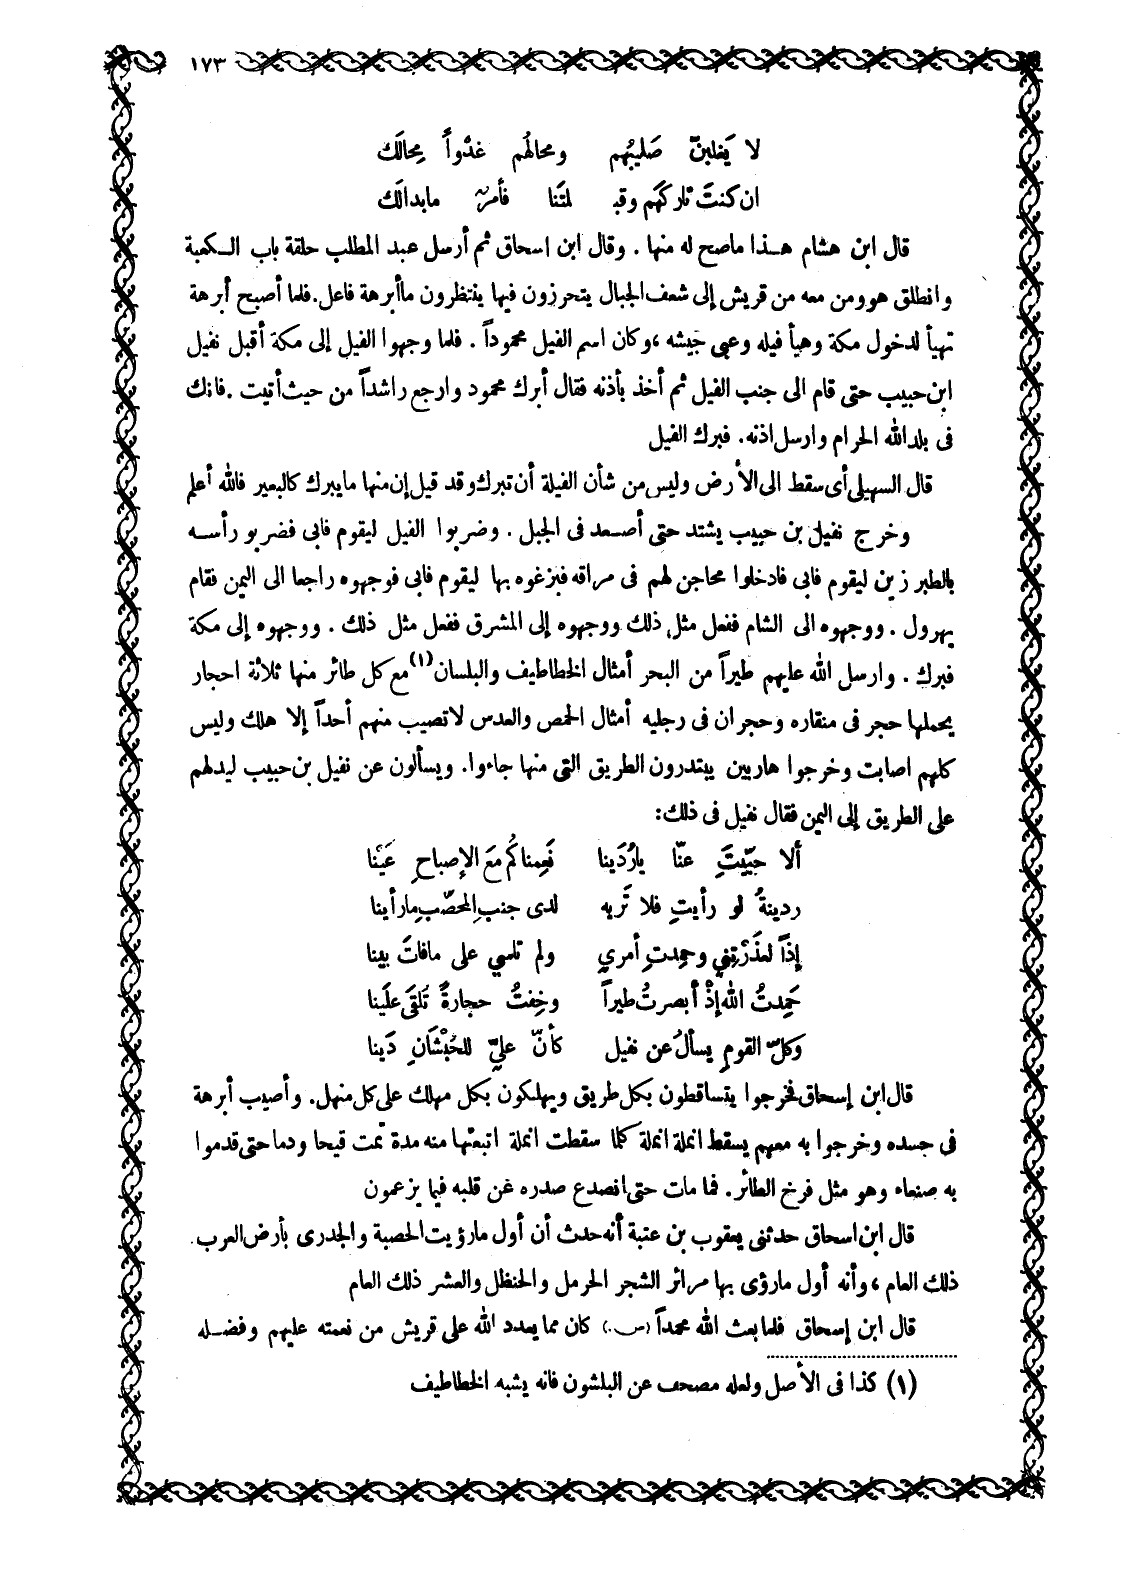 ١٧٣
لا يَغلبنّ صَليبُهم ومحالهُم غدْواً مِحالَك
ان كنتَ تاركهَم وقبـ لتَنا فأمرٌ مابدالَك
قال ابن هشام هـذا ماصح له منها . وقال ابن اسحاق ثم أرسل عبد المطلب حلقة باب الـكعبة
وانطلق هوومن معه من قريش إلى شعف الجبال يتحرزون فيها ينتظرون ماأبرهة فاعل. فلما أصبح أبرهة
تهيأ لدخول مكة وهيأ فيله وعبى جَيشه ،وكان اسم الفيل محموداً . فلما وجهوا الفيل إلى مكة أقبل نفيل
ابن حبيب حتى قام الى جنب الفيل ثم أخذ بأذنه فقال أبرك محمود وارجع راشداً من حيث أتيت .فانك
فى بلدالله الحرام وارسل اذنه. فبرك الفيل
قال السهيلى أى سقط الى الأرض وليس من شأن الفيلة أن تبرك وقد قيل إن منها مايبرك كالبعير فالله أعلم
وخرج نفيل بن حبيب يشتد حتى أصـعد فى الجبل . وضربوا الفيل ليقوم فابى فضربو رأسـه
بالطبر زين ليقوم فابى فادخلوا محاجن لهم فى مراقه فبزغوه بها ليقوم فابى فوجهوه راجعا الى اليمن فقام
يهرول . ووجهوه الى الشام ففعل مثل ذلك ووجهوه إلى المشرق ففعل مثل ذلك . ووجهوه إلى مكة
فبرك . وارسل الله عليهم طيراً من البحر أمثال الخطاطيف والبلسان(١) مع كل طائر منها ثلاثة احجار
يحملها حجر فى منقاره وحجران فى رجليه أمثال الحمص والعدس لاتصيب منهم أحداً إلا هلك وليس
كلهم اصابت وخرجوا هاربين يبتدرون الطريق التى منها جاءوا. ويسألون عن نفيل بن حبيب ليدلهم
على الطريق إلى اليمن فقال نفيل فى ذلك:
ألا حيّيتِ عنّا يارُدَينا نَعِمناكُم مَعَ الإِصباحِ عَيْنا
ردينةُ لو رأيتِ فلا تَريه لدى جنبِ المحصّبِ مارأينا
إذاً لعذَرْتِني وحمِدتِ أمري ولم تأسي على مافاتَ بينا
حَمِدتُ الله إذْ أبصرتُ طيراً وخِفتُ حجارةً تُلقىَ علَينا
وكلّ القومِ يسألُ عن نفيل كأنّ عليّ للحُبْشَانِ دَينا
قال ابن إسحاق فخرجوا يتساقطون بكل طريق ويهلكون بكل مهلك على كل منهل. وأصيب أبرهة
فى جسده وخرجوا به معهم يسقط انملة انملة كلما سقطت انملة اتبعتها منه مدة تمت قيحا ودما حتى قدموا
به صنعاء وهو مثل فرخ الطائر. فما مات حتى انصدع صدره عن قلبه فيما يزعمون
قال ابن اسحاق حدثنى يعقوب بن عتبة أنه حدث أن أول مارؤيت الحصبة والجدرى بأرض العرب
ذلك العام ، وأنه أول مارؤى بها مرائر الشجر الحرمل والحنظل والعشر ذلك العام
قال ابن إسحاق فلما بعث الله محمداً (ص.) كان مما يعدد الله على قريش من نعمته عليهم وفضـله
(١) كذا فى الأصل ولعله مصحف عن البلشون فانه يشبه الخطاطيف